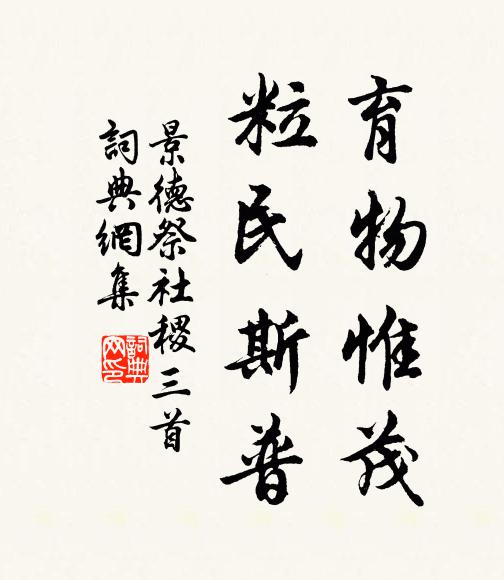 育物惟茂
粒民斯普
景德祭社稷三首
詞典網集
詞典网印